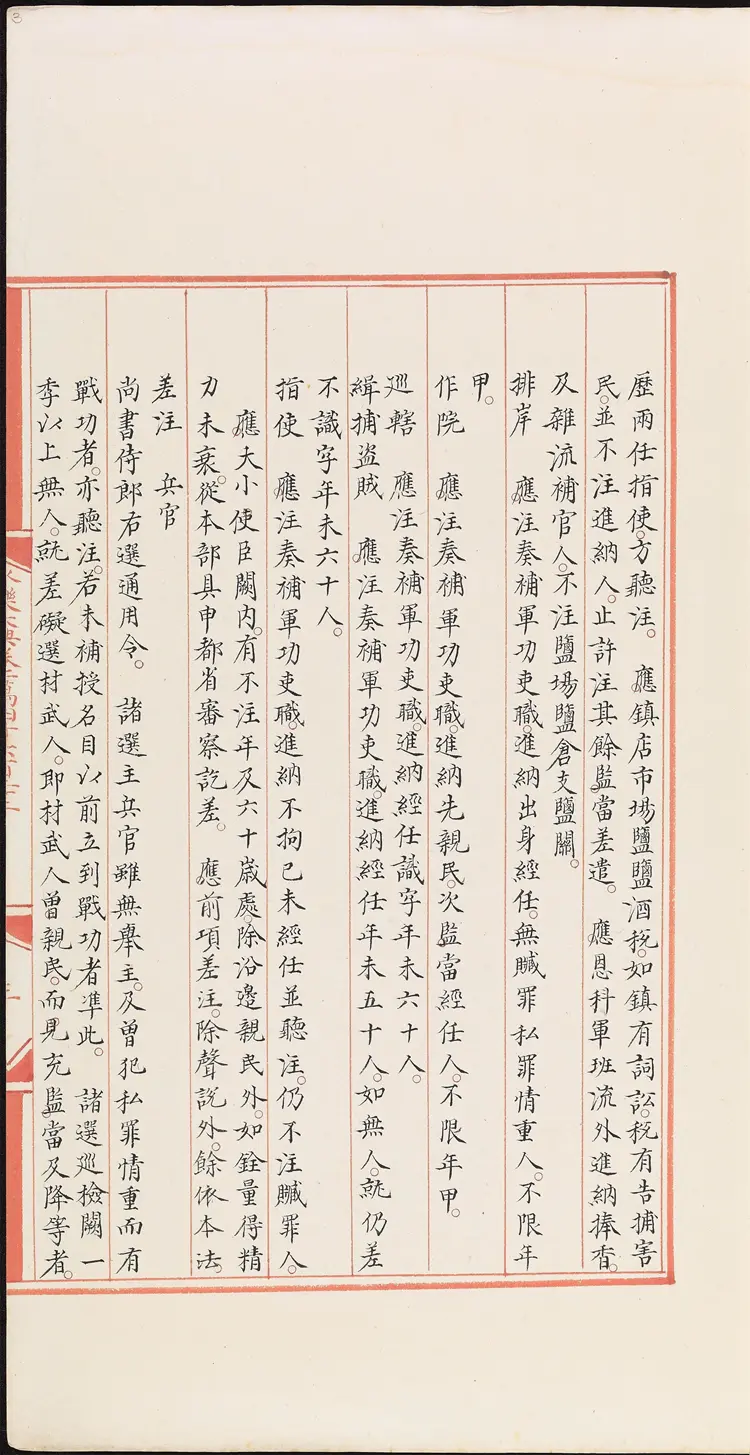 歷兩任指使。方聽注。 應鎮店市場鹽鹽酒稅。如鎮有詞訟。稅有告捕害
民。並不注進納人。止許注其餘監當差遣。 應恩科軍班流外進納捧香。
及雜流補官人。不注鹽場鹽倉支鹽關。
排岸 應注奏補軍功吏職。進納出身經任。無贓罪私罪情重人。不限年
甲。
作院 應注奏補軍功吏職。進納先親民。次監當經任人。不限年甲。
巡轄 應注奏補軍功吏職。進納經任識字年未六十人。
緝捕盜賊 應注奏補軍功吏職。進納經任年未五十人。如無人。就仍差
不識字年未六十人。
指使 應注奏補軍功吏職。進納不拘已未經任並聽注。仍不注贓罪人。
應大小使臣闕內。有不注年及六十歲處。除沿邊親民外。如銓量得精
力未衰。從本部具申都省審察訖差。 應前項差注。除聲說外。餘依本法。
差注 兵官
尚書侍郎右選通用令。 諸選主兵官雖無舉主。及曾犯私罪情重而有
戰功者。亦聽注。若未補授名目以前立到戰功者準此。 諸選巡檢闕一
季以上無人。就差礙選材武人。即材武人曾親民。而見充監當及降等者。